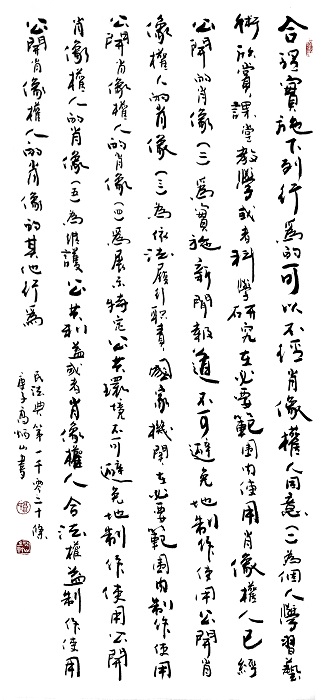 合理實施下列行為的可以不經肖像權人同意(一)為個人學習藝
術欣賞課堂教學或者科學研究在必要範圍內使用肖像權人已經
公開的肖像(二)為實施新聞報道不可避免地制作使用公開肖
像權人的肖像(三)為依法履行職責國家機關在必要範圍內制作使用
公開肖像權人的肖像(四)為展示特定公共環境不可避免地制作使用公開
肖像權人的肖像(五)為維護公共利益或者肖像權人合法權益制作使用
公開肖像權人的肖像的其他行為
民法典第一千零二十條
庚子高炳山書